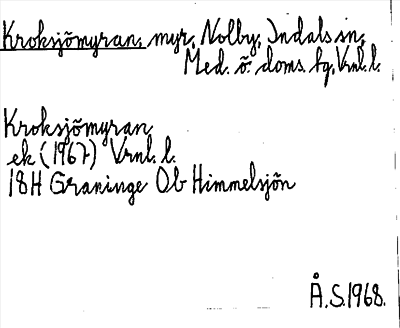 Kroksjömyran, myr, Nolby, Indals sn,
Med. ö. doms. hg, Vrnl. l.
Kroksjömyran
ek (1967) Vrnl. l.
18H Graninge Ob Himmelsjön
Å.S. 1968.